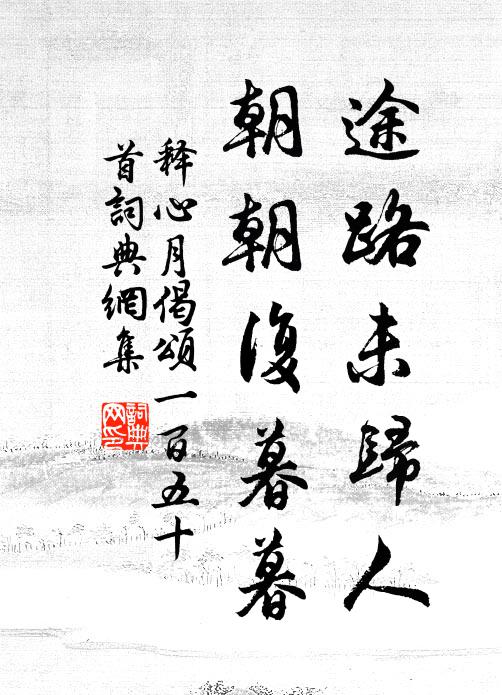 途路未歸人
朝朝復暮暮
释心月偈頌一百五十
首詞典網集
詞典
网印